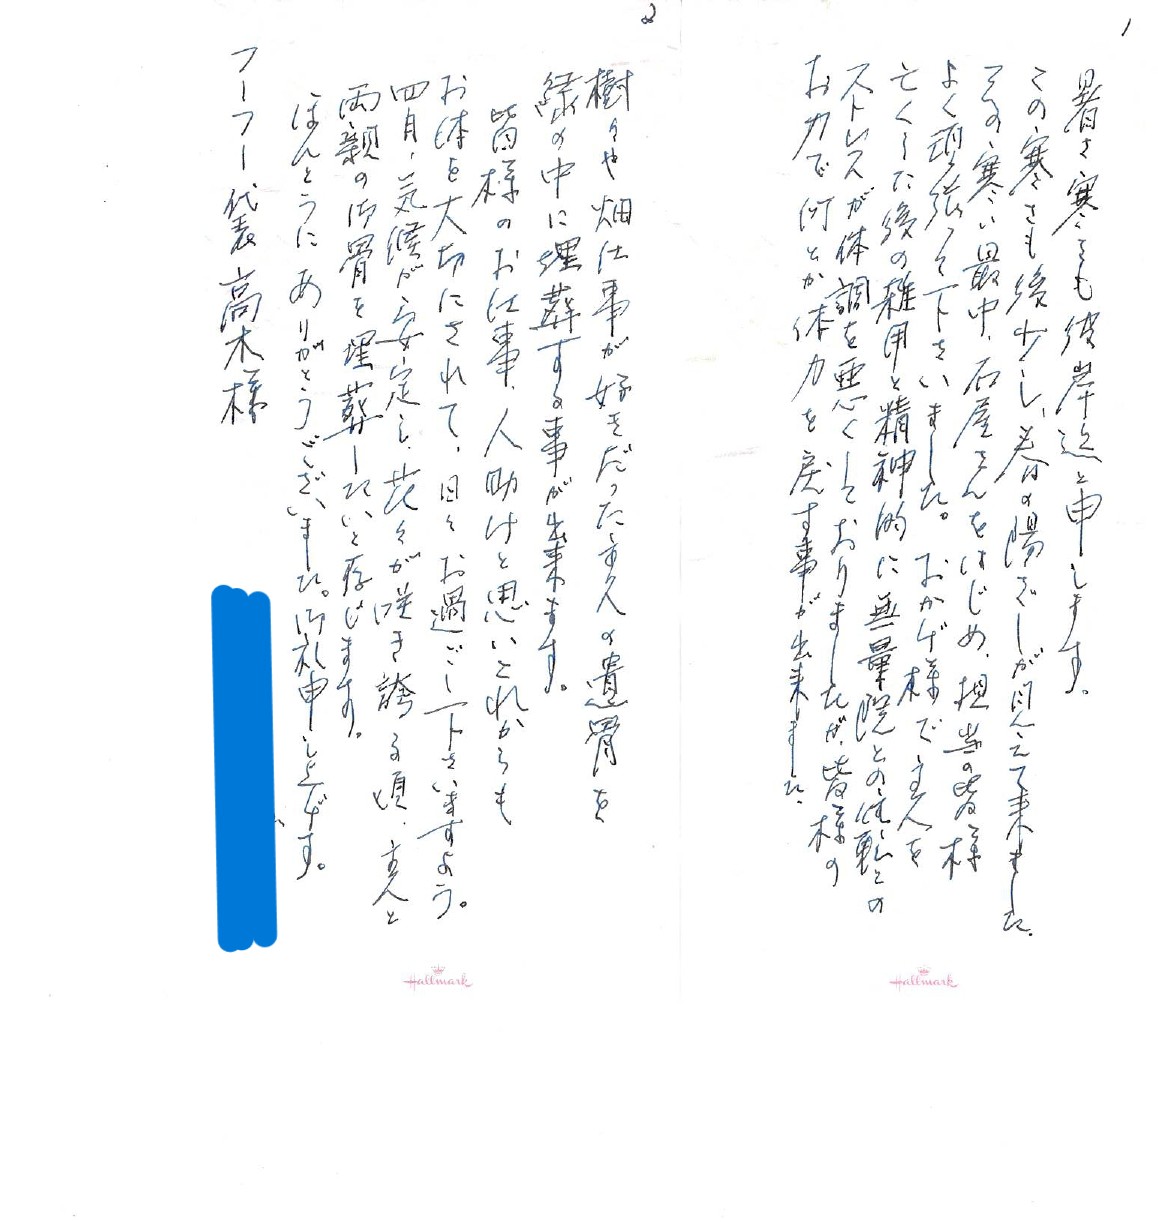 1
暑さ寒さも彼岸迄と申します。
この寒さも後少し、春の陽ざしが見えて来ました。
その寒い最中、石屋さんをはじめ、担当の皆様
よく頑張って下さいました。おかげ様で主人を
亡くした後の雑用と精神的に無量院との行動との
ストレスが体調を悪くしておりましたが、皆様の
お力で何とか体力を戻す事が出来ました。
2
樹々や畑仕事が好きだった主人の遺骨を
緑の中に埋葬する事が出来ます。
皆様のお仕事、人助けと思いこれからも
お体を大切にされて、日々お過ごし下さいますよう。
四月、気候が安定し、花々が咲き誇る頃、主人と
両親の御骨を埋葬したいと存じます。
ほんとうにありがとうございました。御礼申し上げます。
フーフー代表 高木様
Hallmark
Hallmark